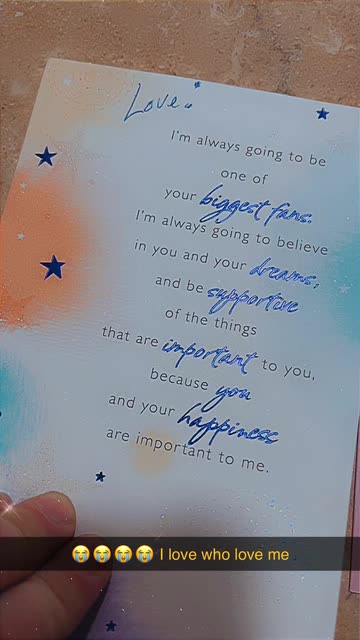 Love..
I'm always going to be
one of
your biggest fans.
I'm always going to believe
in you and your dreams,
and be supportive
of the things
that are important to you,
because you
and your happiness
are important to me.
😭😭😭😭 I love who love me